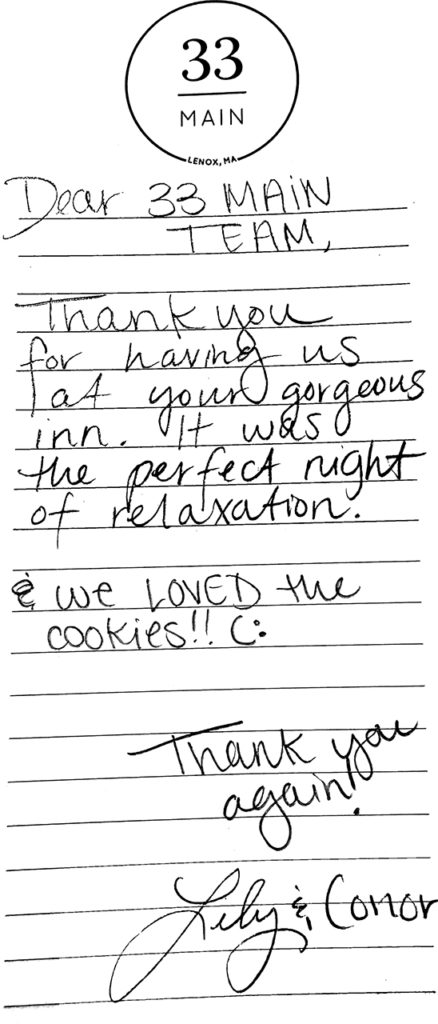 33
MAIN
LENOX, MA
Dear 33 MAIN
TEAM,
Thank you
for having us
at your gorgeous
inn. It was
the perfect night
of relaxation.
& we LOVED the
cookies!! C:
Thank you
again!
Lily & Conor